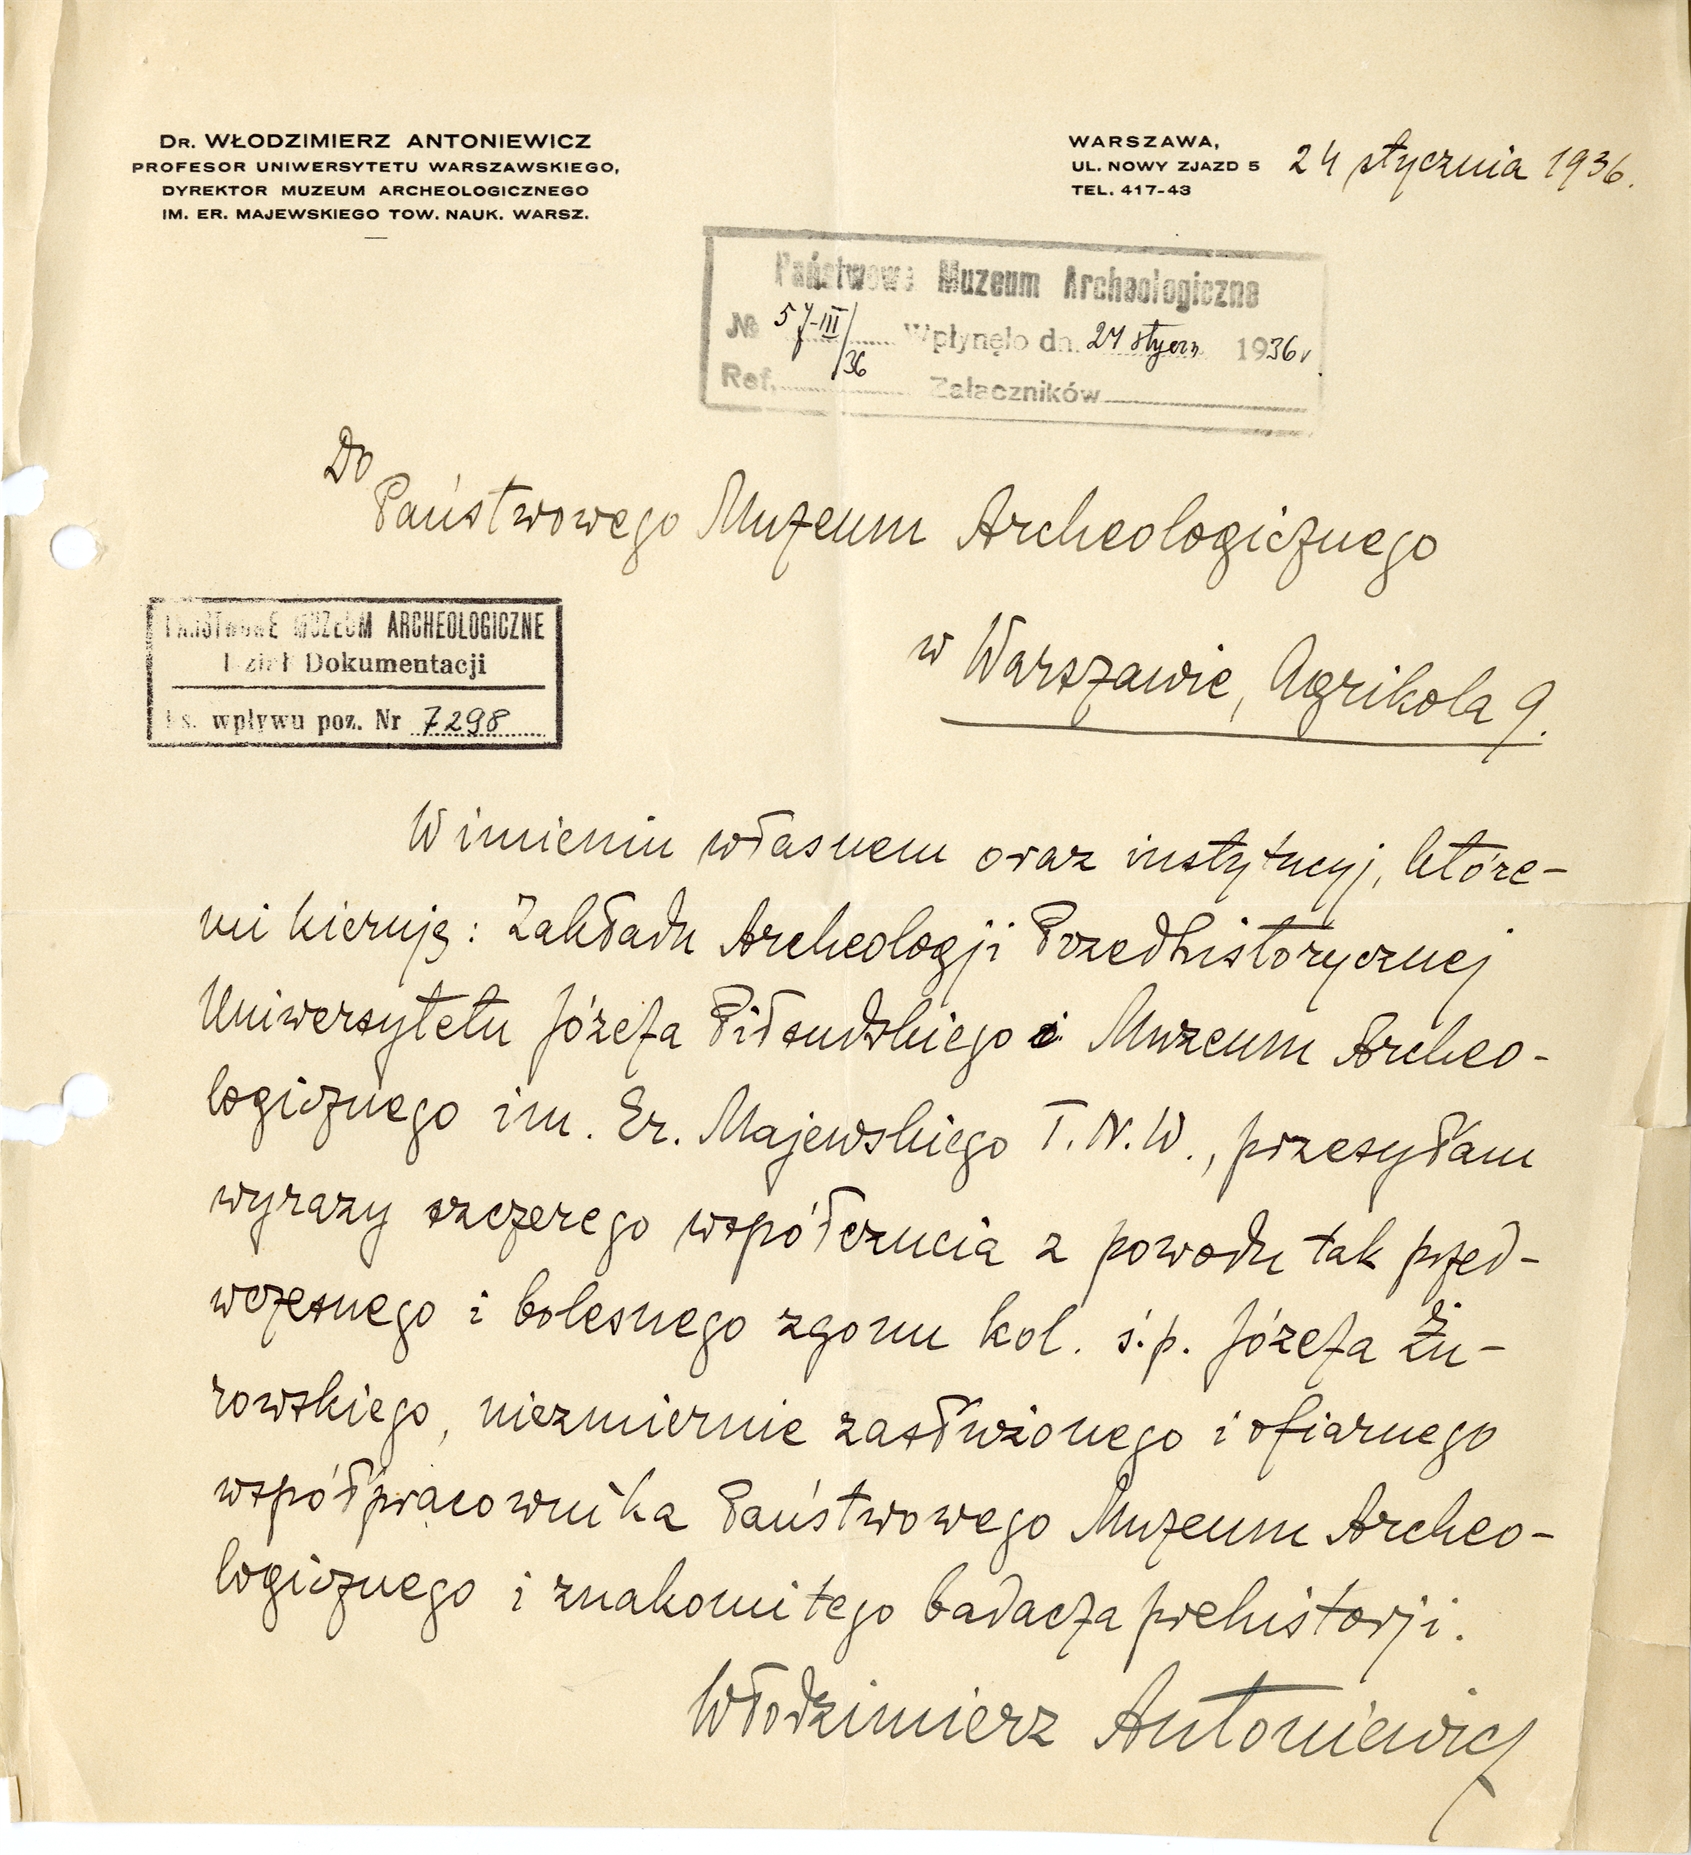 DR. WŁODZIMIERZ ANTONIEWICZ
PROFESOR UNIWERSYTETU WARSZAWSKIEGO,
DYREKTOR MUZEUM ARCHEOLOGICZNEGO
IM. ER. MAJEWSKIEGO TOW. NAUK. WARSZ.
WARSZAWA,
UL. NOWY ZJAZD 5 24 stycznia 1936.
TEL. 417-43
Państwowe Muzeum Archeologiczne
№ 57-III/36 Wpłynęło dn. 27 stycz 1936 r.
Ref. Załączników
Do
Państwowego Muzeum Archeologicznego
w Warszawie, Agrikola 9.
PAŃSTWOWE MUZEUM ARCHEOLOGICZNE
Dział Dokumentacji
Ks. wpływu poz. Nr 7298
W imieniu własnem oraz instytucyj, które-
mi kieruję: Zakładu Archeologji Przedhistorycznej
Uniwersytetu Józefa Piłsudskiego i Muzeum Archeo-
logicznego im. Er. Majewskiego T.N.W., przesyłam
wyrazy szczerego współczucia z powodu tak przed-
wczesnego i bolesnego zgonu kol. ś.p. Józefa Żu-
rowskiego, niezmiernie zasłużonego i ofiarnego
współpracownika Państwowego Muzeum Archeo-
logicznego i znakomitego badacza prehistorji.
Włodzimierz Antoniewicz